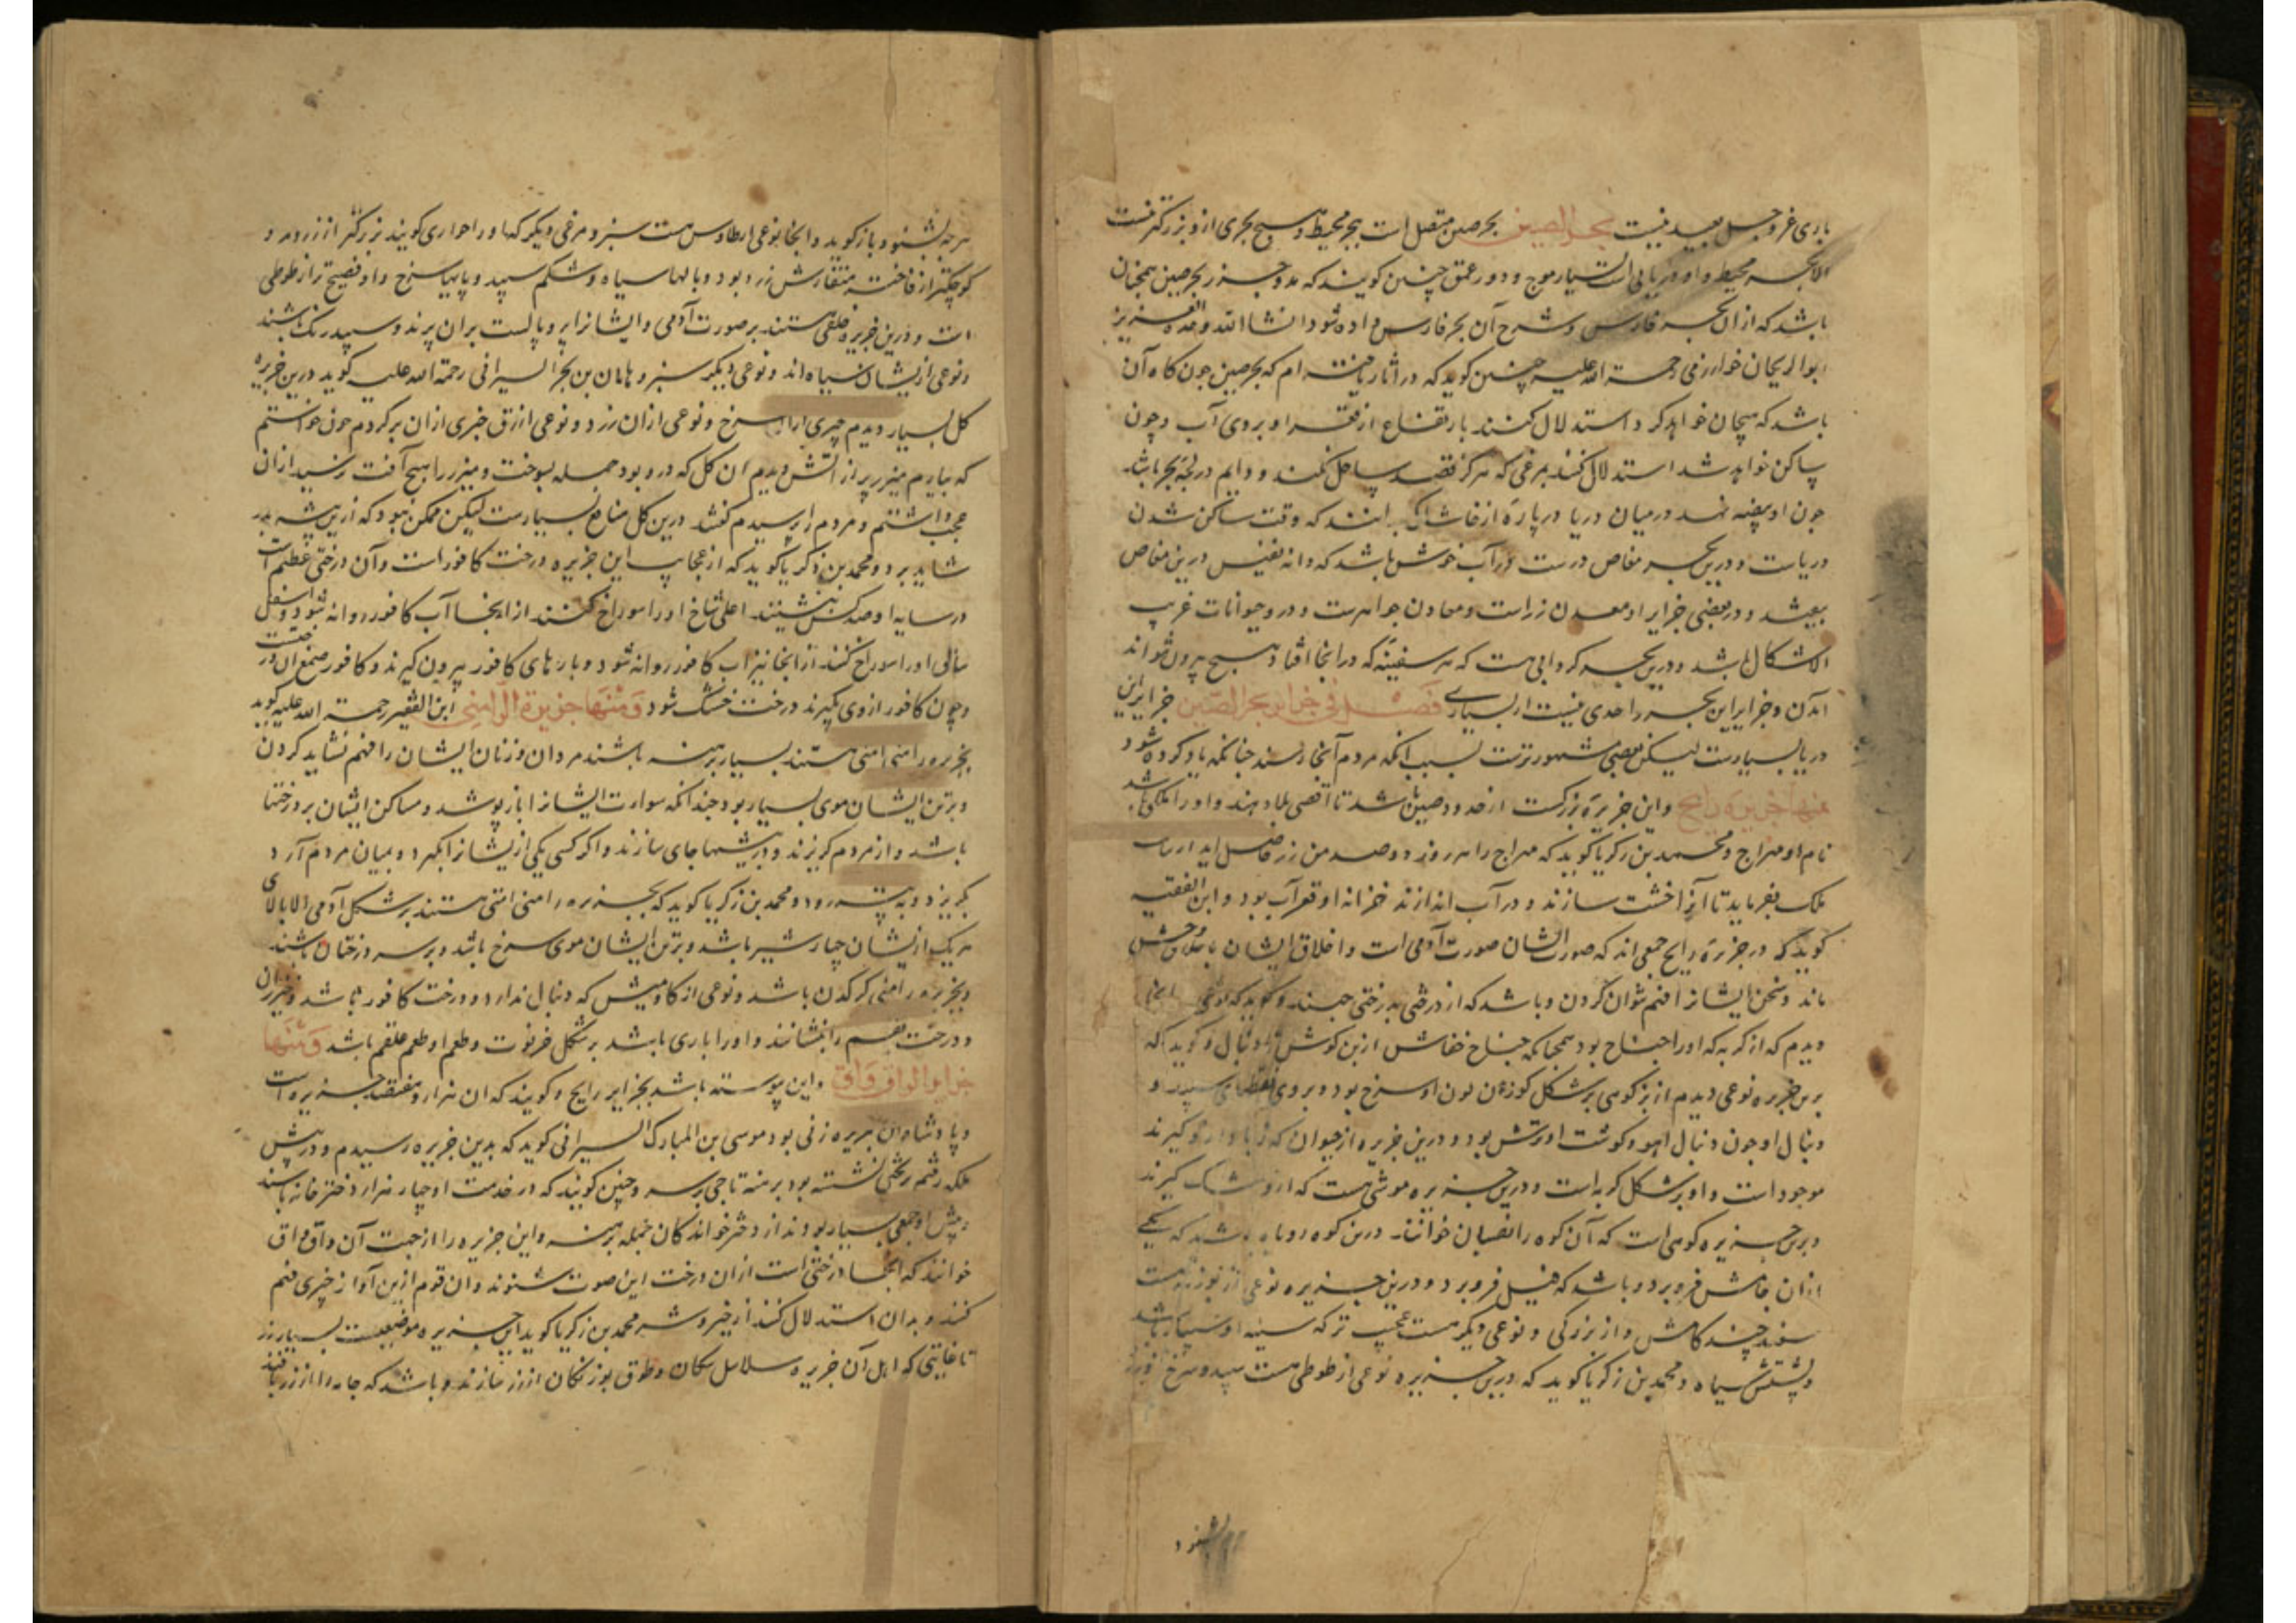 باری عز و جل بعید نیست بحر الصین بحر صین متصل است ببحر محیط و هیچ بحری ازو بزرکتر نیست
الا بحر محیط و او دریایی است بسیار موج و دور عمق چنین کویند که مد و جزر بحر صین همچنان
باشد که ازان بحر فارس و شرح آن بحر فارس داده شود انشا الله وحده العزیز
ابوالریحان خوارزمی رحمة الله علیه چنین کوید که در آثار یافته ام که بحر صین چون کاه آن
باشد که هیجان خواهد کرد استدلال کنند بارتفاع از قعر او بروی آب و چون
ساکن خواهد شد استدلال کنند بمرغی که هرکز قصد ساحل نکند و دایم در لجه بحر باشد
چون او بیضه نهد در میان دریا در پاره از خاشاک بدانند که وقت ساکن شدن
دریاست و درین بحر مغاص درست و در آب خوش باشد که دانه نفیس درین مغاص
بیفتد و در بعضی جزایر او معدن زر است و معادن جواهرست و درو حیوانات غریب
الاشکال باشد و درین بحر کردابی هست که هر سفینه که در انجا افتاد هیچ بیرون نتواند
آمدن و جزایر این بحر را حدی نیست از بسیاری فصل فی جزایر بحر الصین جزایر این
دریا بسیارست لیکن بعضی مشهورترست بسبب آنکه مردم آنجا رسند چنانکه یاد کرده شود
منها جزیرة رایج و این جزیره بزرکست از حدود صین باشد تا اقصی بلاد هند و او را ملکی باشد
نام او مهراج و محمد بن زکریا کوید که مهراج را هر روز دوصد من زر حاصل آید
ملک بفرماید تا آنرا خشت سازند و در آب اندازند خزانه او قعر آب بود و ابن الفقیه
کوید که در جزیره رایج جمعی اند که صورت ایشان صورت آدمی است و اخلاق ایشان باخلاق وحش
ماند و سخن ایشانرا فهم نتوان کردن و باشد که از درختی بدرختی جهند و کوید که نوعی انجا
دیدم که از کربه که او را جناح بود همچنانکه جناح خفاش از بن کوش تا دنبال و کوید که
برین جزیره نوعی دیدم از بز کوهی بر شکل کوزن لون او سرخ بود و بروی نقطهای سپید و
دنبال او چون دنبال آهو و کوشت او ترش بود و درین جزیره از حیوان که زباد ازو کیرند
موجود است و او بر شکل کربه است و درین جزیره موشی هست که ازو مشک کیرند
و برین جزیره کوهی است که آن کوه را نصبان خوانند درین کوه باشد که یکی
ازان جاموش فرو برد و باشد که فیل فرو برد و درین جزیره نوعی از بوزنه هست
سفید چند کاومیش از بزرکی و نوعی دیکر هست عجیب تر که سینه او سپید باشد
و پشتش سیاه و محمد بن زکریا کوید که درین جزیره نوعی از طوطی هست سپید و سرخ و زرد
بشنود
هرچه بشنود باز کوید و انجا نوعی از طاوس هست سبز و مرغی دیکر که او را حواری کویند بزرکتر از زرد و
کوچکتر از فاخته منقارش زرد بود و بالها سیاه و شکم سپید و پایها سرخ و او فصیح تر از طوطی
است و درین جزیره خلقی هستند بر صورت آدمی و ایشانرا پر و بالست بران پرند و سپید رنک باشند
و نوعی ازیشان سیاه اند و نوعی دیکر سبز و ماهان بن بحر السیرافی رحمة الله علیه کوید درین جزیره
کل بسیار دیدم چیزی ازان سرخ و نوعی ازان زرد و نوعی ازرق چیزی ازان برکردم چون خواستم
که بیارم میزر پر از آتش دیدم آن کل که درو بود جمله بسوخت و میزر را هیچ آفت نرسید ازان
عجب داشتم و مردم را پرسیدم کفتند درین کل منافع بسیارست لیکن ممکن نبود که ازین بیشه بدر
شاید برد و محمد بن زکریا کوید که از عجایب این جزیره درخت کافور است و آن درختی عظیم است
در سایه او صد کس بنشینند اعلی شاخ او را سوراخ کنند از انجا آب کافور روانه شود و اسفل
ساق او را سوراخ کنند از انجا نیز آب کافور روانه شود و پارهای کافور بیرون کیرند و کافور صمغ آن درختست
و چون کافور از وی بکیرند درخت خشک شود و منها جزیرة الرامنی ابن الفقیه رحمة الله علیه کوید
بجزیره رامنی امتی هستند بسیار برهنه باشند مردان و زنان ایشان را فهم نشاید کردن
و بر تن ایشان موی بسیار بود چندانکه سوات ایشانرا باز پوشد و مساکن ایشان بر درختها
باشد و از مردم کریزند و در بیشها جای سازند و اکر کسی یکی ازیشانرا بکیرد و میان مردم آرد
بکریزد و به بیشه رود و محمد بن زکریا کوید که بجزیره رامنی امتی هستند بر شکل آدمی الا بالای
هر یک ازیشان چهار شبر باشد و بر تن ایشان موی سرخ باشد و بر سر درختان باشند
و بجزیره رامنی کرکدن باشد و نوعی از کاومیش که دنبال ندارد و درخت کافور باشد و خیزران
و درخت بقم را بنشانند و او را باری باشد بر شکل خرنوب و طعم او طعم علقم باشد و منها
جزایر الواق واق و این پیوسته باشد بجزایر رایج و کویند که ان هزار و هفتصد جزیره است
و پادشاه ان جزیره زنی بود موسی بن المبارک السیرافی کوید که بدین جزیره رسیدم و در پیش
ملکه رفتم بر تختی نشسته بود برهنه تاجی بر سر و چنین کویند که در خدمت او چهار هزار دختر خانه باشند
و پیش او جمعی بسیار بودند از دختر خواندکان جمله برهنه و این جزیره را از جهت آن واق واق
خوانند که انجا درختی است ازان درخت این صوت شنوند و ان قوم ازین آواز چیزی فهم
کنند و بدان استدلال کنند از خیر و شر محمد بن زکریا کوید این جزیره موضعیست بسیار زر
تا غایتی که اهل آن جزیره سلاسل سکان و طوق بوزنکان از زر سازند و باشد که جامه را از زر بافند